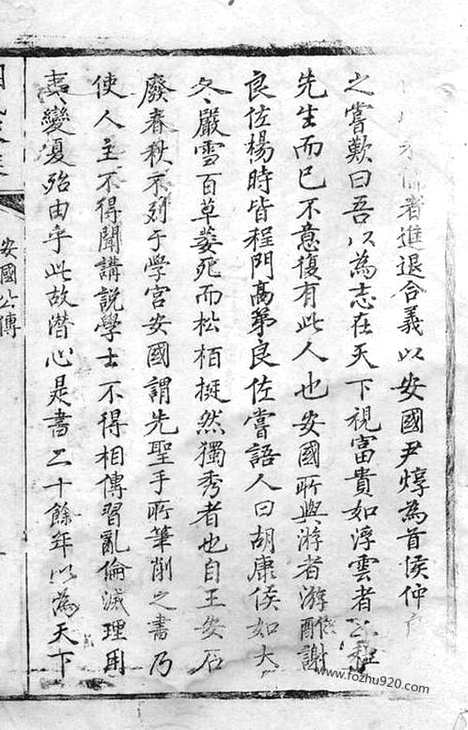 著進退合義以安國尹焞為首侯仲
之嘗歎曰吾以為志在天下視富貴如浮雲者二程
先生而已不意復有此人也安國所與游者游酢謝
良佐楊時皆程門高第良佐嘗語人曰胡康侯如大
冬嚴雪百草萎死而松栢挺然獨秀者也自王安石
廢春秋不列于學宮安國謂先聖手所筆削之書乃
使人主不得聞講説學士不得相傳習亂倫滅理用
夷變夏殆由乎此故潛心是書二十餘年以為天下
安國公傳
www.fozhu920.com